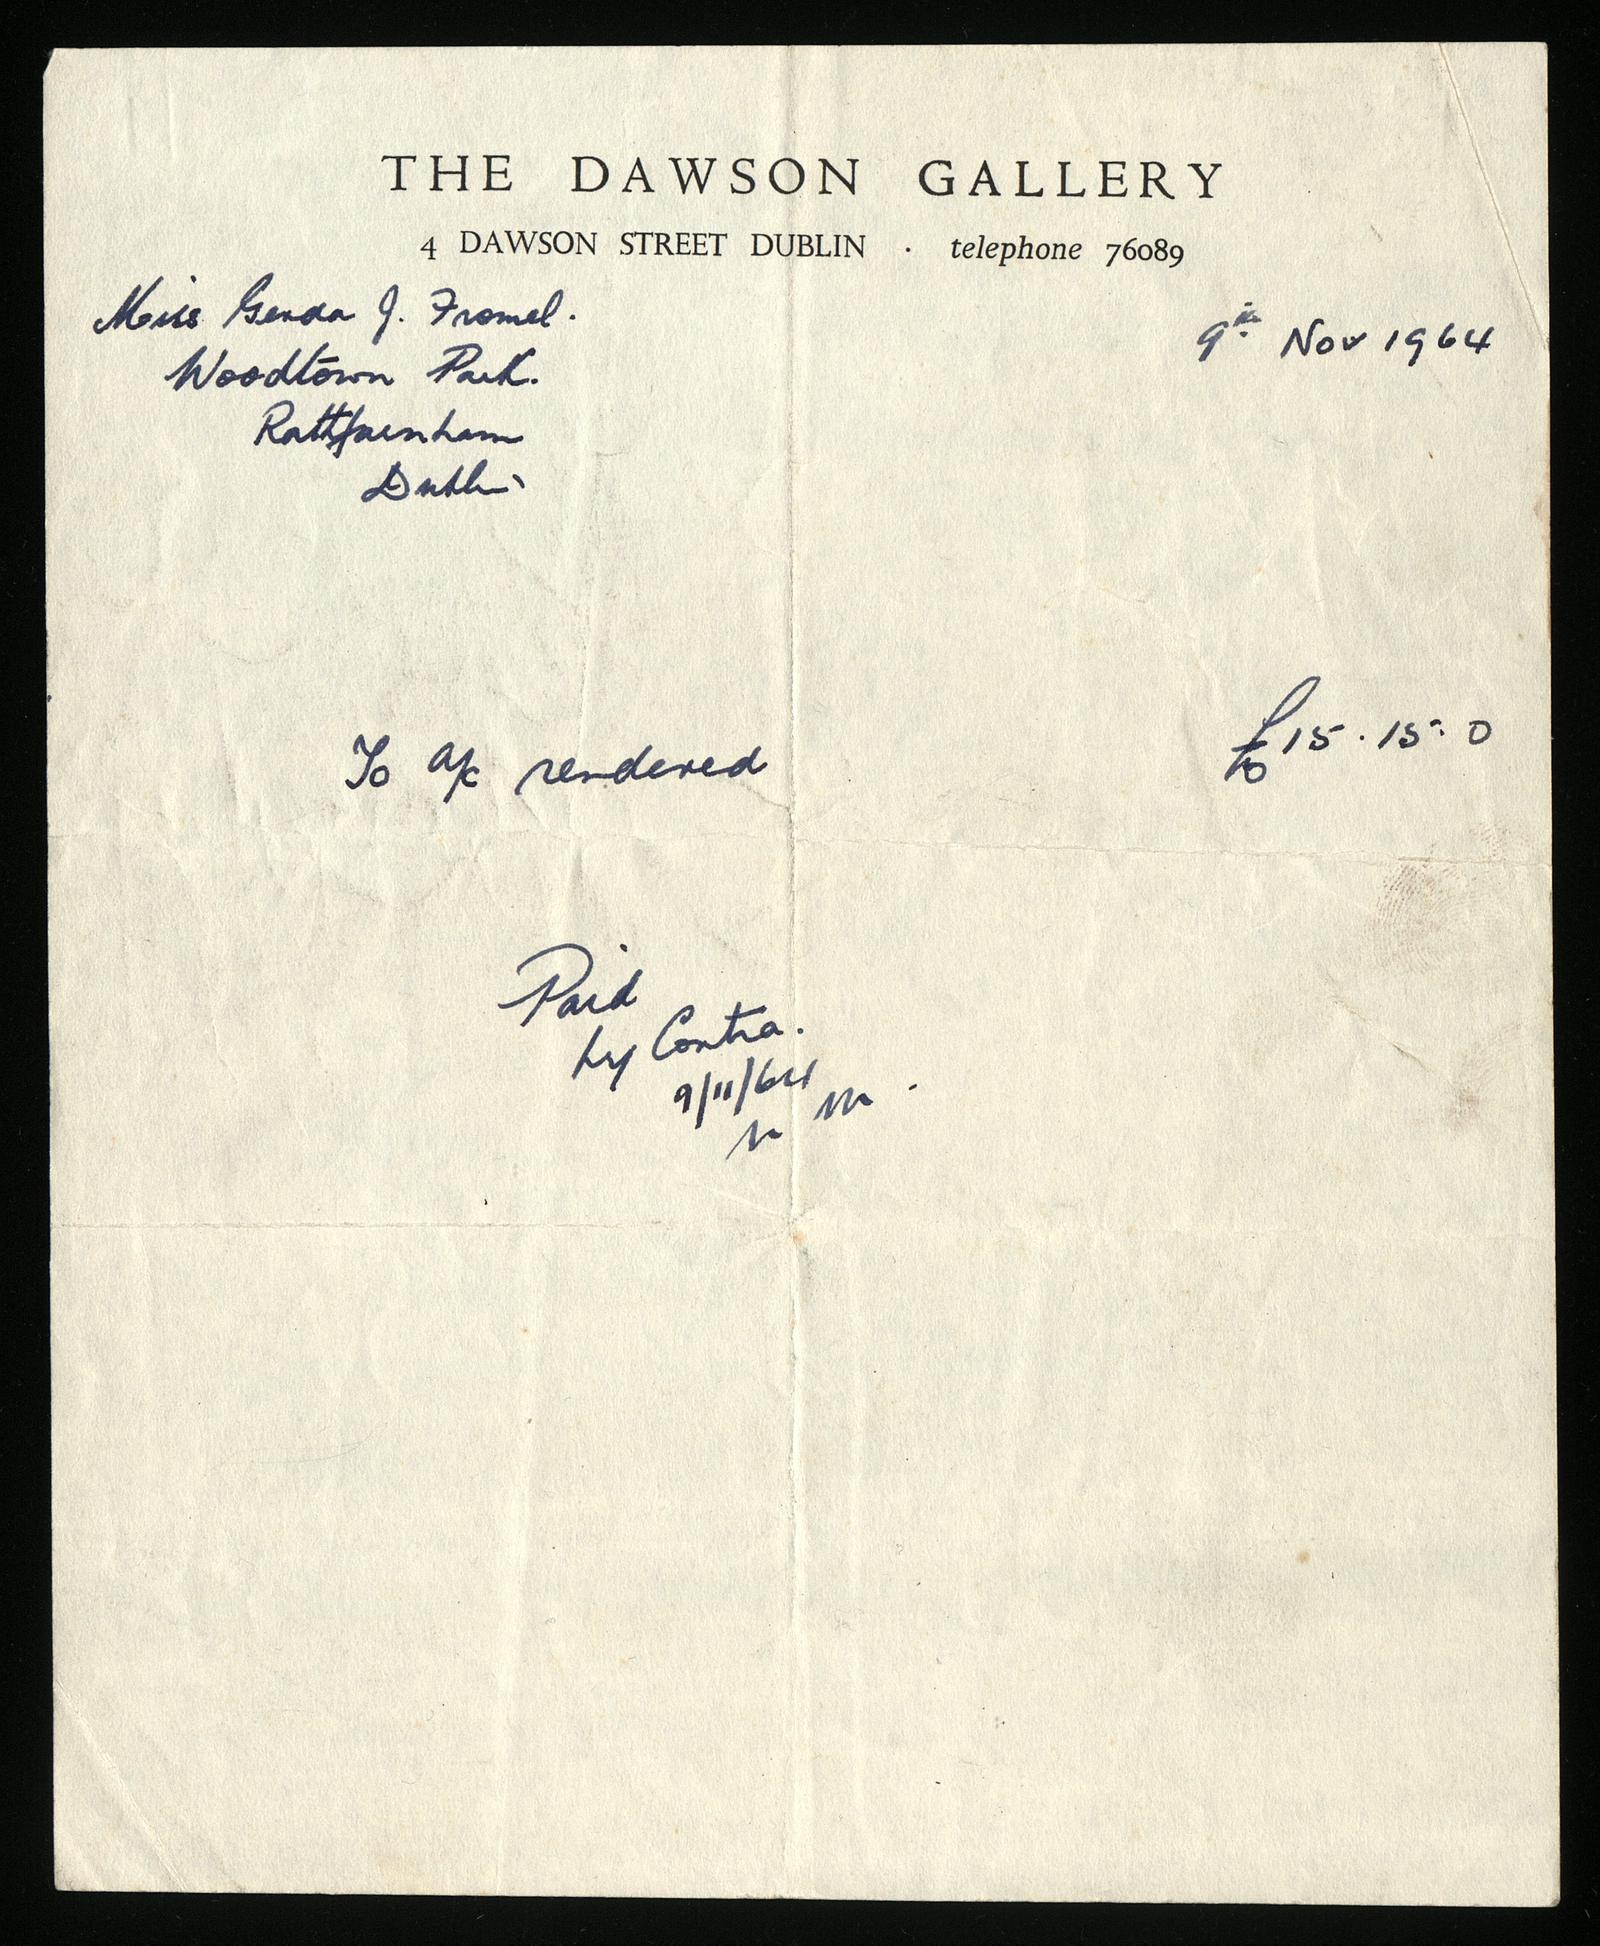 THE DAWSON GALLERY
4 DAWSON STREET DUBLIN · telephone 76089
Miss Gerda J. Fromel.
9th Nov 1964
Woodtown Park.
Rathfarnham
Dublin
To a/c rendered £15.15.0
Paid
by Contra.
9/11/64